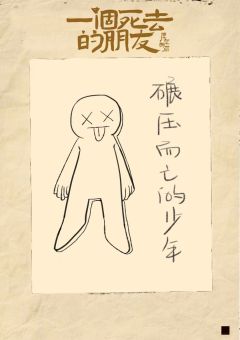 一個死去
的朋友
碾压而亡的少年